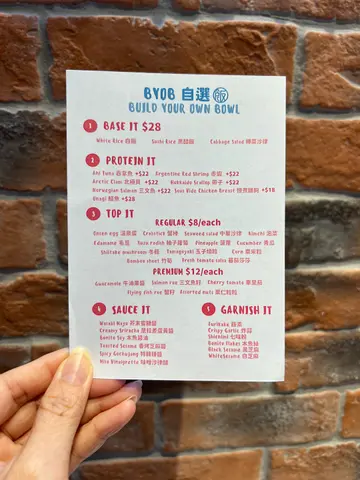 BYOB 自選 飯
BUILD YOUR OWN BOWL
1 BASE IT $28
White Rice 白飯 Sushi Rice 壽司飯 Cabbage Salad 椰菜沙律
2 PROTEIN IT
Ahi Tuna 吞拿魚 +$22 Argentina Red Shrimp 赤蝦 +$22
Arctic Clam 北極貝 +$22 Hokkaido Scallop 帶子 +$22
Norwegian Salmon 三文魚 +$22 Sous Vide Chicken Breast 慢煮雞胸 +$18
Unagi 鰻魚 +$28
3 TOP IT
REGULAR $8/each
Onsen egg 溫泉蛋 Crabstick 蟹柳 Seaweed salad 中華沙律 Kimchi 泡菜
Edamame 毛豆 Yuzu radish 柚子蘿蔔 Pineapple 菠蘿 Cucumber 青瓜
Shiitake mushroom 冬菇 Tamagoyaki 玉子燒粒 Corn 粟米粒
Bamboo shoot 竹筍 Fresh tomato salsa 蕃茄莎莎
PREMIUM $12/each
Guacamole 牛油果醬 Salmon roe 三文魚籽 Cherry tomato 車厘茄
Flying fish roe 蟹籽 Assorted nuts 果仁粒粒
4 SAUCE IT
Wasabi Mayo 芥末蛋黃醬
Creamy Sriracha 是拉差蛋黃醬
Bonito Soy 木魚豉油
Toasted Sesame 香烤芝麻醬
Spicy Gochujang 韓式辣醬
Miso Vinaigrette 味噌沙律醋
5 GARNISH IT
Furikake 飯素
Crispy Garlic 炸蒜
Shichimi 七味粉
Bonito Flakes 木魚絲
Black Sesame 黑芝麻
White Sesame 白芝麻